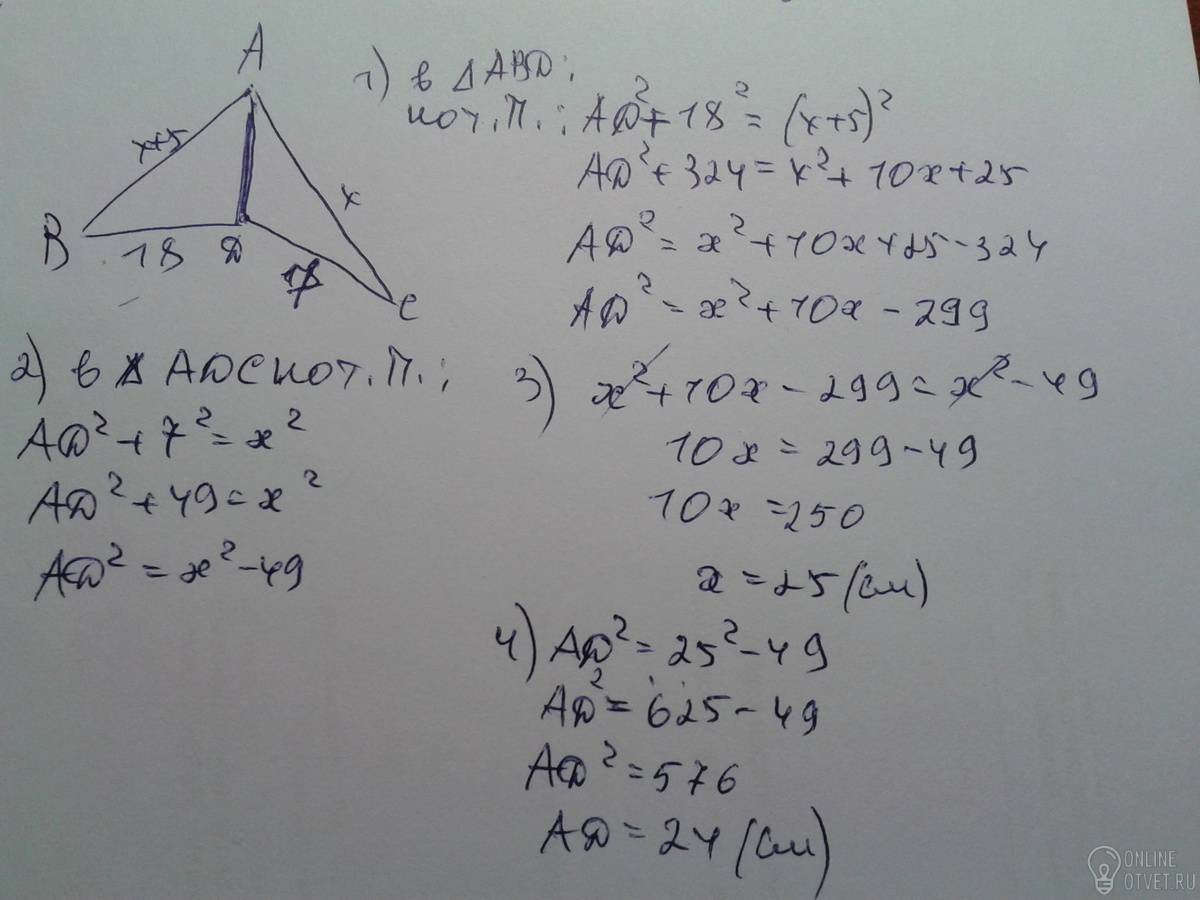 A
x+5
x
B
18
D
7
C
1) в △ABD:
по т. П.: AD²+18²=(x+5)²
AD²+324=x²+10x+25
AD²=x²+10x+25-324
AD²=x²+10x-299
2) в △ADC по т. П.:
AD²+7²=x²
AD²+49=x²
AD²=x²-49
3) x²+10x-299=x²-49
10x=299-49
10x=250
x=25(см)
4) AD²=25²-49
AD²=625-49
AD²=576
AD=24(см)
ONLINE
OTVET.RU